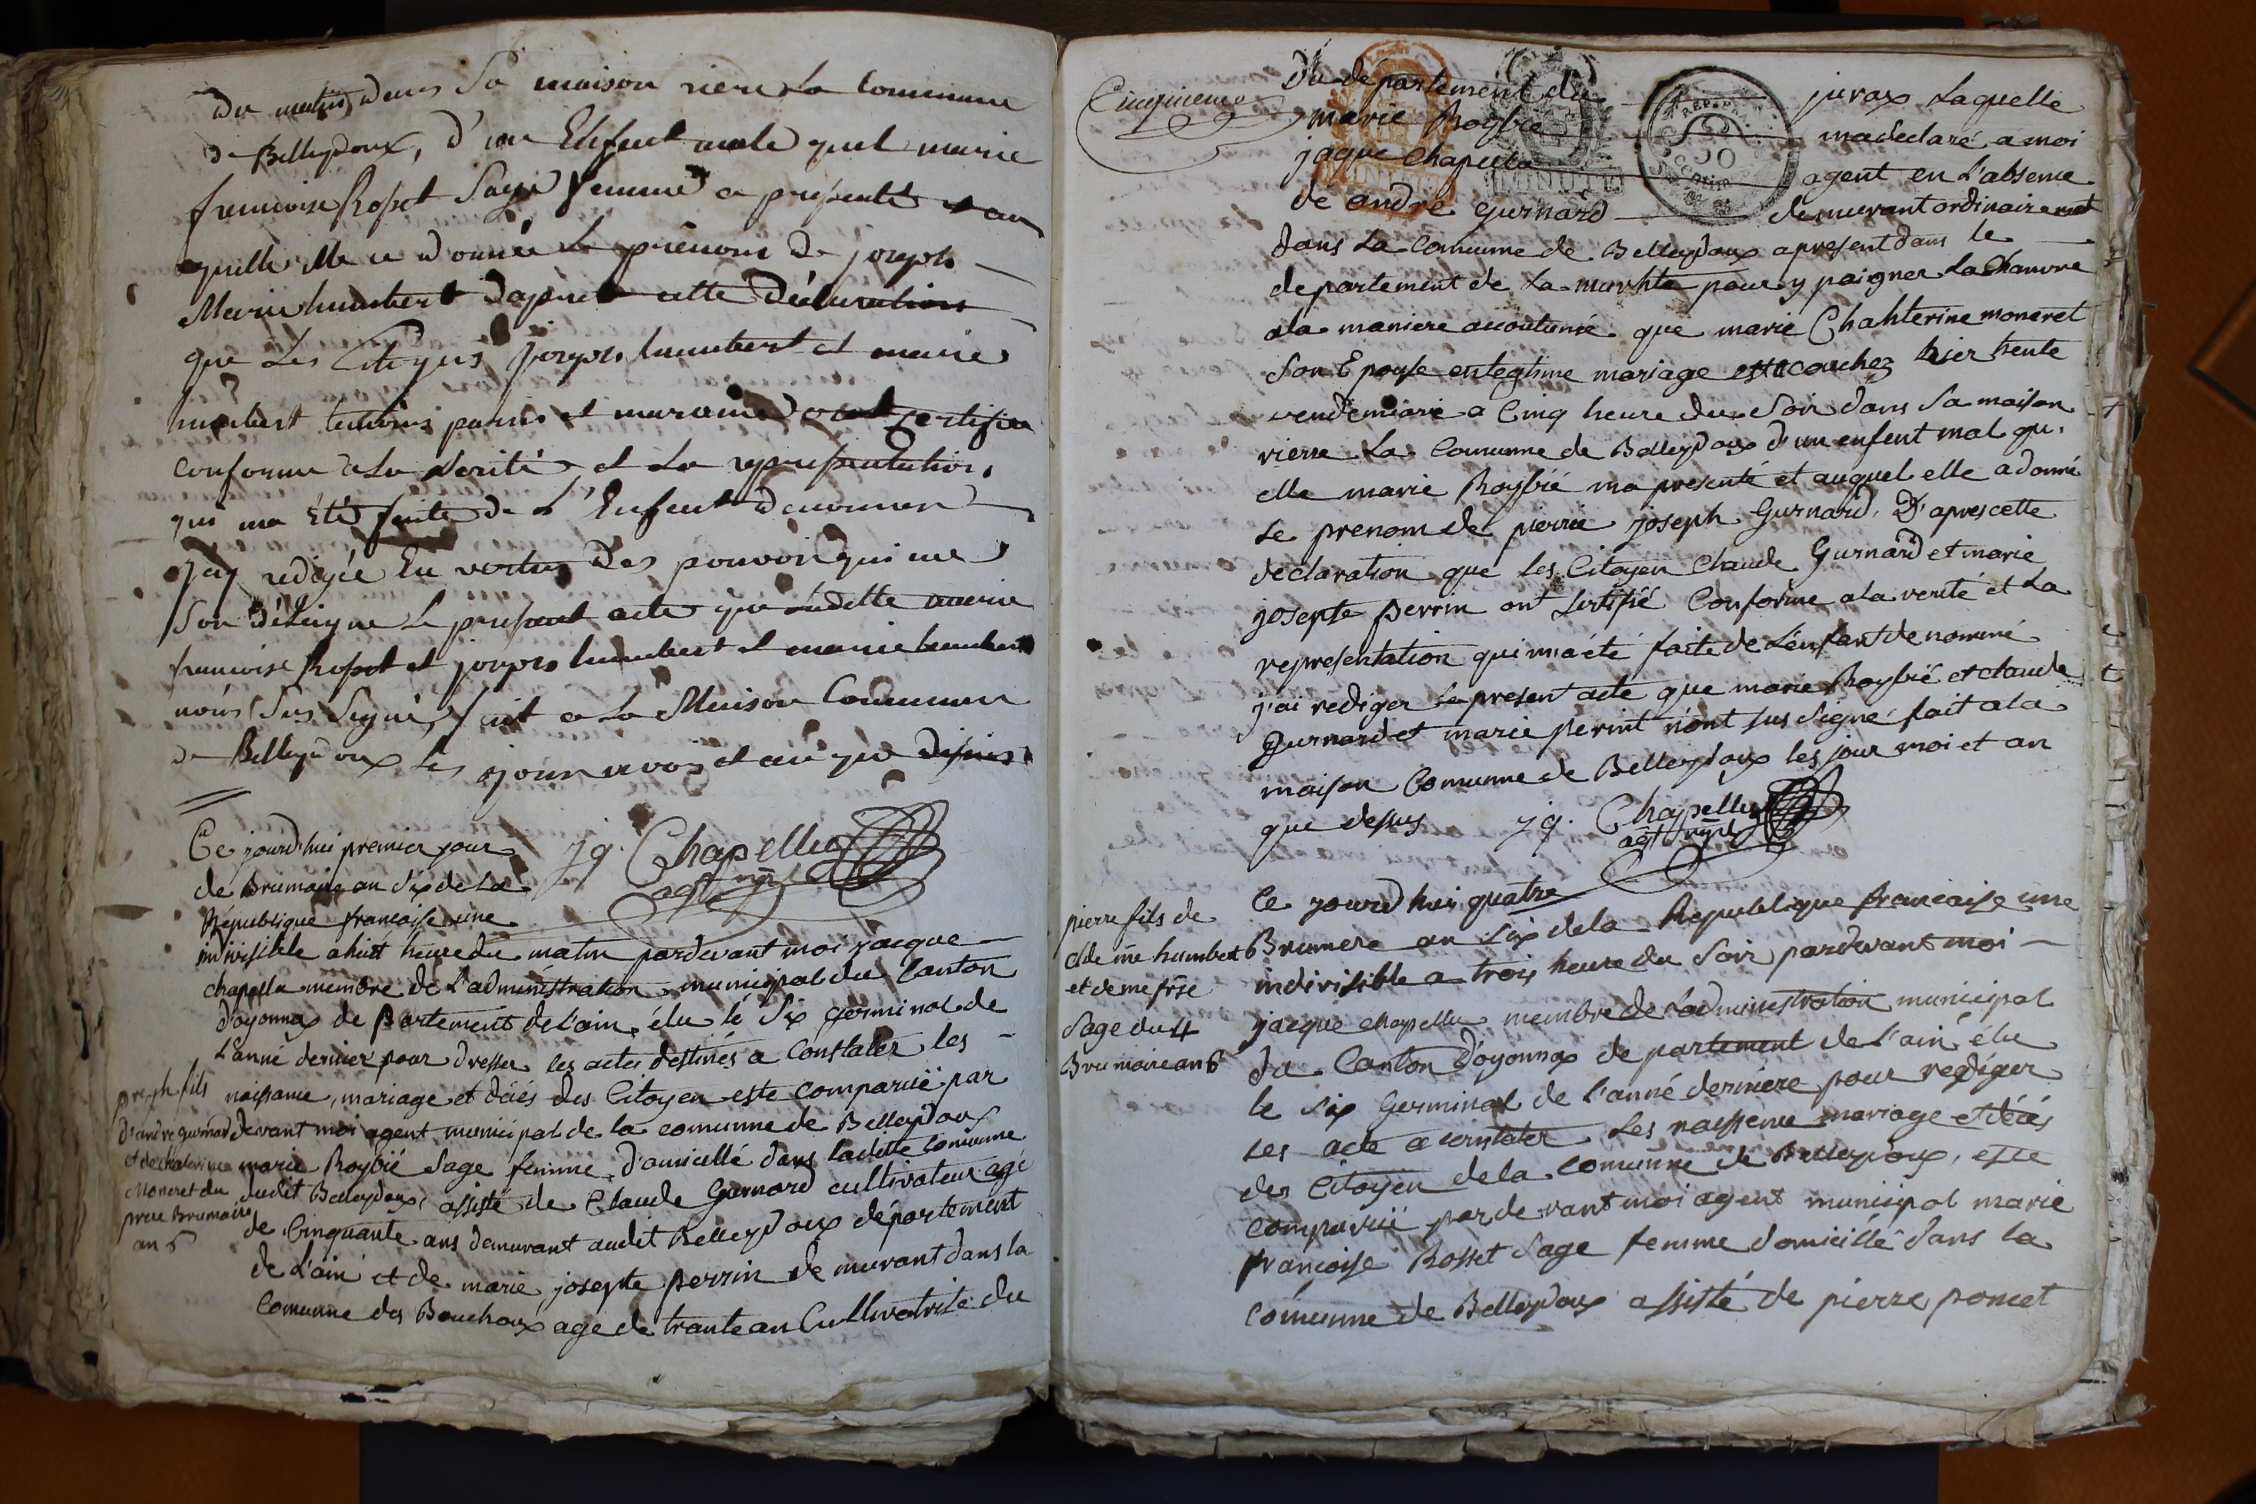 du matin dans Sa maison riere La Commune
de Belleydoux, d'un Enfent male quel marie
francoise Rosset Sage femme a presenté et au
quelle elle a donnée Le prénom de joseph
Marie humbert dapret cette déclaration
que Les Citoyens joseph humbert et marie
humbert temoins parins et maraine ont certifiee
conforme a La Verité et La representation
qui ma Eté faite de L'Enfent denommer
jay redigée En vertus des pouvoir qui me
Son déleigne Le present acte que Ladette marie
francoise Rosset et joseph humbert et marie humbert
nons Sus Signé, fait a La Maison Commune
de Belleydoux les jour mois et an que desus
jq. Chapellu
agt mpl
Ce jourd'hui premier jour
de Brumaire an Six de La
République francaise une
indivisible a huit heure du matin pardevant moi jacque
chapellu membre de L'administration municipal du Canton
d'oyonnax de partement de L'ain, élu le Six germinal de
L'anné dernier pour dresser les actes destinés a Constater les
naissance, mariage et décés des Citoyen este comparuë par
devant moi agent municipal de la comunne de Belleydoux
marie Roybié Sage femme d'omicillé dans ladite Comunne
dudit Belleydoux, assisté de Claude Gurnard cultivateur agé
de Cinquante ans demurant audit Belleydoux département
de L'ain et de marie josepte perrin demurant dans la
Comunne des Bouchoux age de trante an Cultivatrite du
joseph fils
d'andre gurnard
et de chaterine
Moneret du
prre Brumaire
an 6
Cinquieme
du département du jurax Laquelle
marie Roybié madeclaré a moi
jaque chapellu agent en L'absence
de andre gurnard demurant ordinairemet
dans La Comunne de Belleydoux apresent dans le
departement de La murhte pour y paigner La Chanvre
ala maniere acoutumé que marie Chahterine moneret
Son Epouse en legtime mariage est acouchez hier trente
vendemiaire a Cinq heure du Soir dans Sa maison
rierre La Comunne de Belleydoux d'un enfent mal qu.
elle marie Roysbié ma presenté et auquel elle a donné
Le prenom de pierre joseph Gurnard. D'apres cette
declaration que les Citoyen Claude Gurnard et marie
josepte perrin ont Sertifié Conforme ala verité et La
representation qui m'a été faite de L'enfant denommé
j'ai rediger Le present acte que marie Roysbié et claude
Gurnard et marie perint n'ont sus Signé fait ala
maison Comunne de Belleydoux les jour moi et an
que dessus jq. Chapellu
agt mpl
pierre fils de
Cldemie humbert
et de me frse
Sage du 4
Brumaire an 6
Ce jourd hui quatre
Brumere an Six dela Republique francaise une
indivisible a trois heure du Soir pardevant moi
jacque chapellu membre de L'administration municipal
du Canton d'oyonnax de partement de L'ain élu
le Six Germinal de L'anné derniere pour rediger
les acte a constater Les naissence mariage et décés
des Citoyen dela Comunne de Belleydoux, este
comparuë par de vant moi agent municipal marie
francoise Rosset Sage femme domicillé dans la
Comunne de Belleydoux assisté de pierre poncet